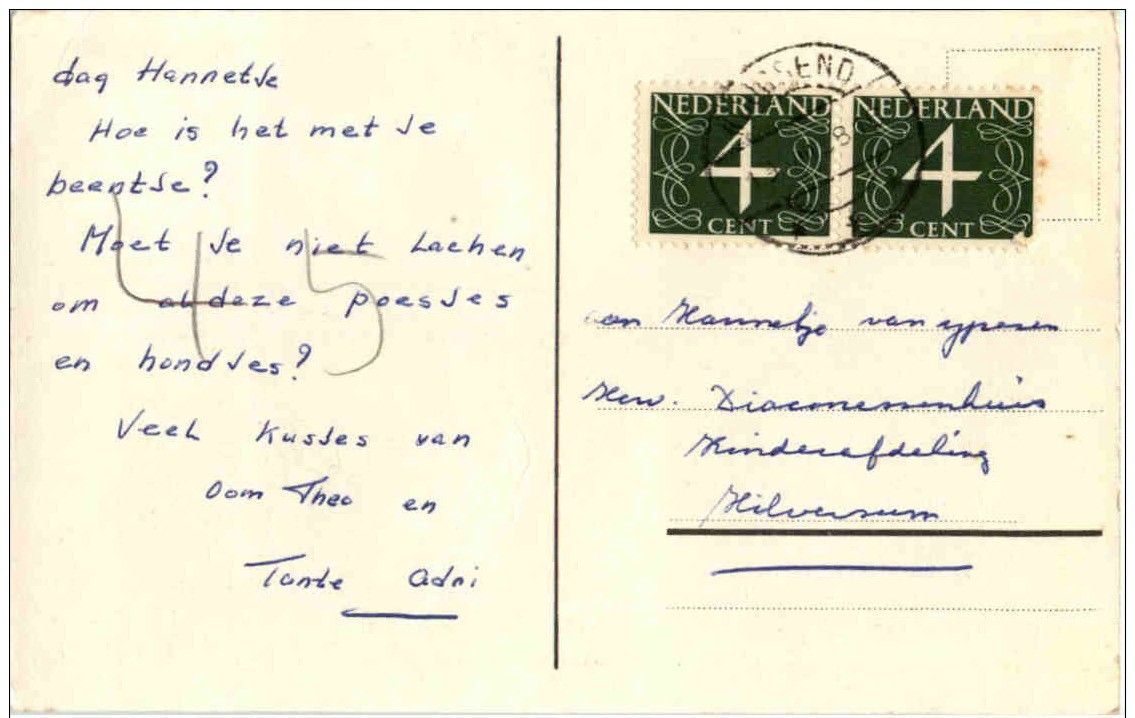 dag Hannetje
Hoe is het met je
beentje?
Moet je niet lachen
om al deze poesjes
en hondjes?
Veel kusjes van
Oom Theo en
Tante Adri
45
NEDERLAND
4
CENT
NEDERLAND
4
CENT
aan Hannetje van
Herv. Diaconessenhuis
Kinderafdeling
Hilversum